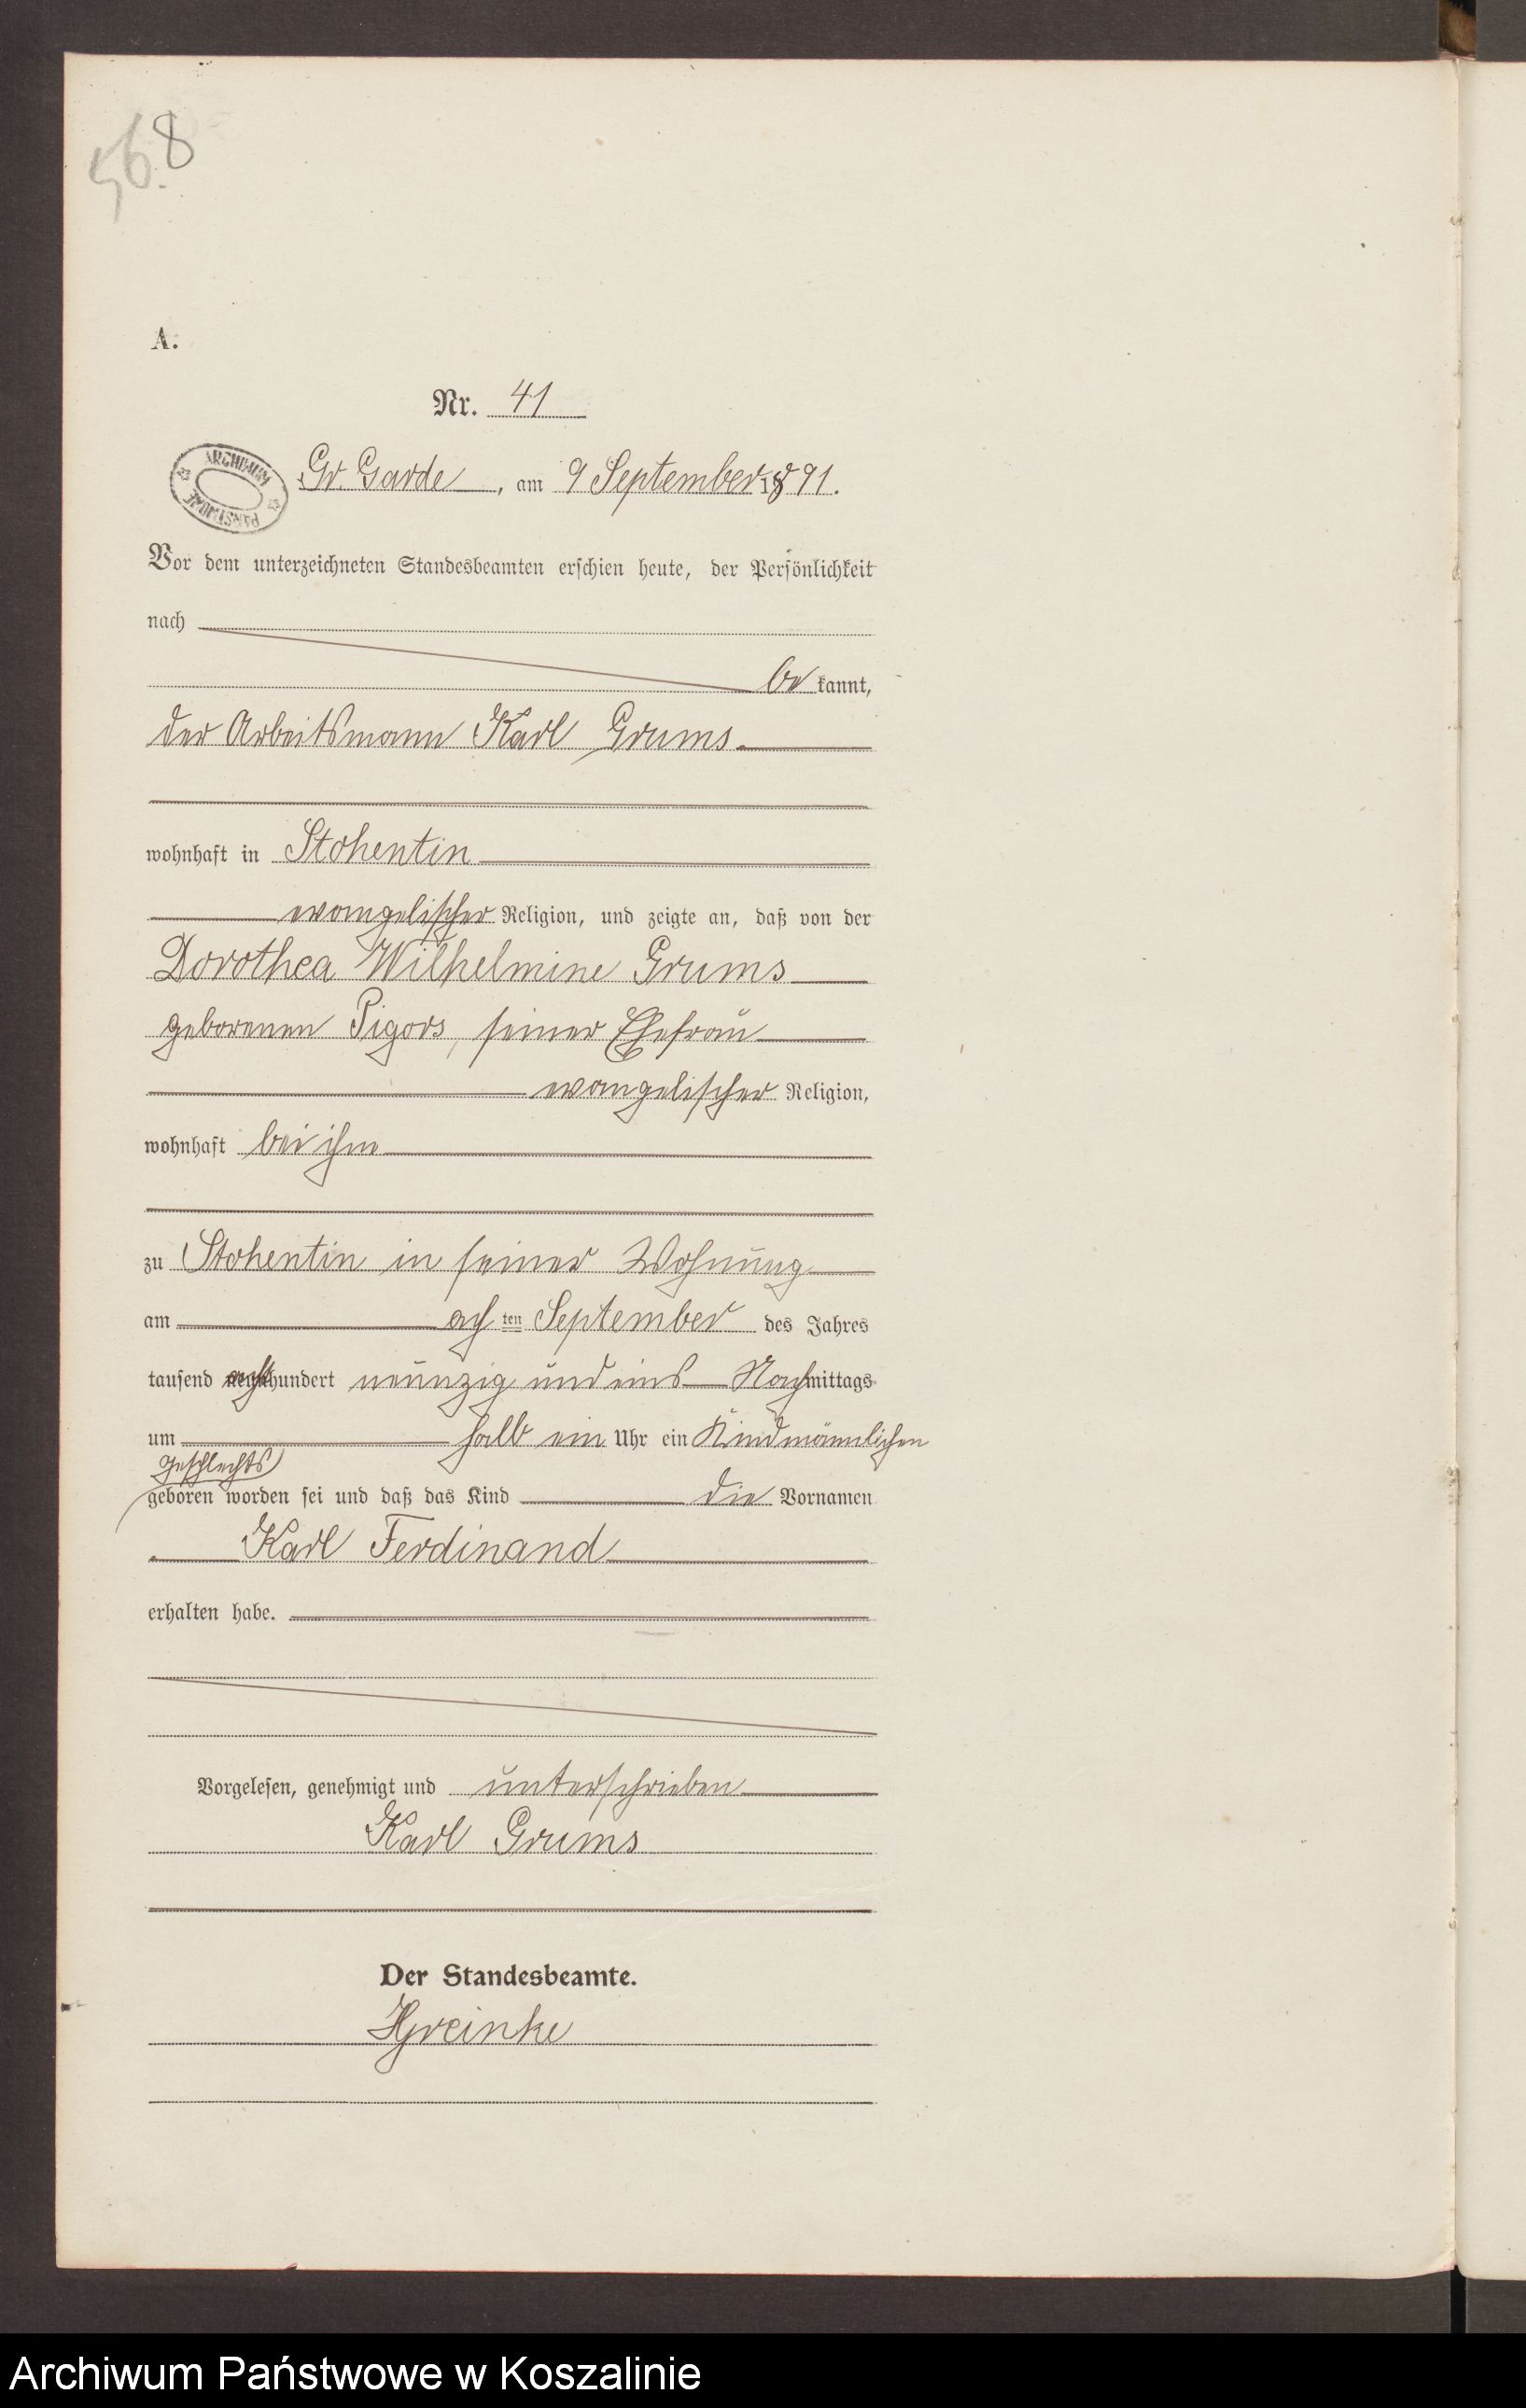 568
A.
Nr. 41
ARCHIWUM PAŃSTWOWE
Gr. Garde, am 9 September 1891.
Vor dem unterzeichneten Standesbeamten erschien heute, der Persönlichkeit
nach
be kannt,
der Arbeitsmann Karl Grums
wohnhaft in Stohentin
evangelischer Religion, und zeigte an, daß von der
Dorothea Wilhelmine Grums
geborenen Pigors, seiner Ehefrau
evangelischer Religion,
wohnhaft bei ihm
zu Stohentin in seiner Wohnung
am ach ten September des Jahres
tausend acht hundert neunzig und eins Nachmittags
um halb ein Uhr ein Kind männlichen
Geschlechts
geboren worden sei und daß das Kind die Vornamen
Karl Ferdinand
erhalten habe.
Vorgelesen, genehmigt und unterschrieben
Karl Grums
Der Standesbeamte.
Archiwum Państwowe w Koszalinie